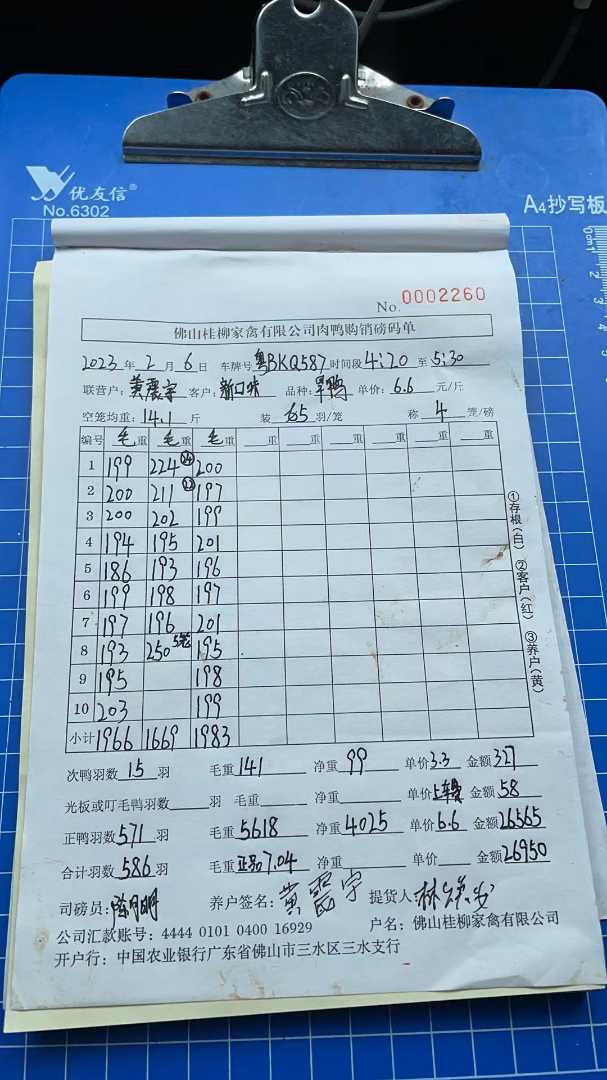 优友信®
No.6302
A4抄写板
No. 0002260
佛山桂柳家禽有限公司肉鸭购销磅码单
2023年2月6日 车牌号粤BKQ587时间段4:20至5:30
联营户:黄震宇 客户:新口味 品种:旱鸭 单价:6.6元/斤
空笼均重:14.1斤 装 65羽/笼 称4笼/磅
编号 毛重 毛重 毛重 重 重 重 重 重
1 199 224 24 200
2 200 211 22 197
3 200 202 199
4 194 195 201
5 186 193 196
6 199 198 197
7 197 196 201
8 193 250 5笼 195
9 195 198
10 203 199
小计 1966 1669 1983
①存根(白) ②客户(红) ③养户(黄)
次鸭羽数15羽 毛重141 净重99 单价3.3 金额327
光板或叮毛鸭羽数 羽 毛重 净重 单价上车费 金额58
正鸭羽数571羽 毛重5618 净重4025 单价6.6 金额26565
合计羽数586羽 毛重正品7.04 净重 单价 金额26950
司磅员: 养户签名:黄震宇 提货人:林
公司汇款账号:4444 0101 0400 16929 户名:佛山桂柳家禽有限公司
开户行:中国农业银行广东省佛山市三水区三水支行